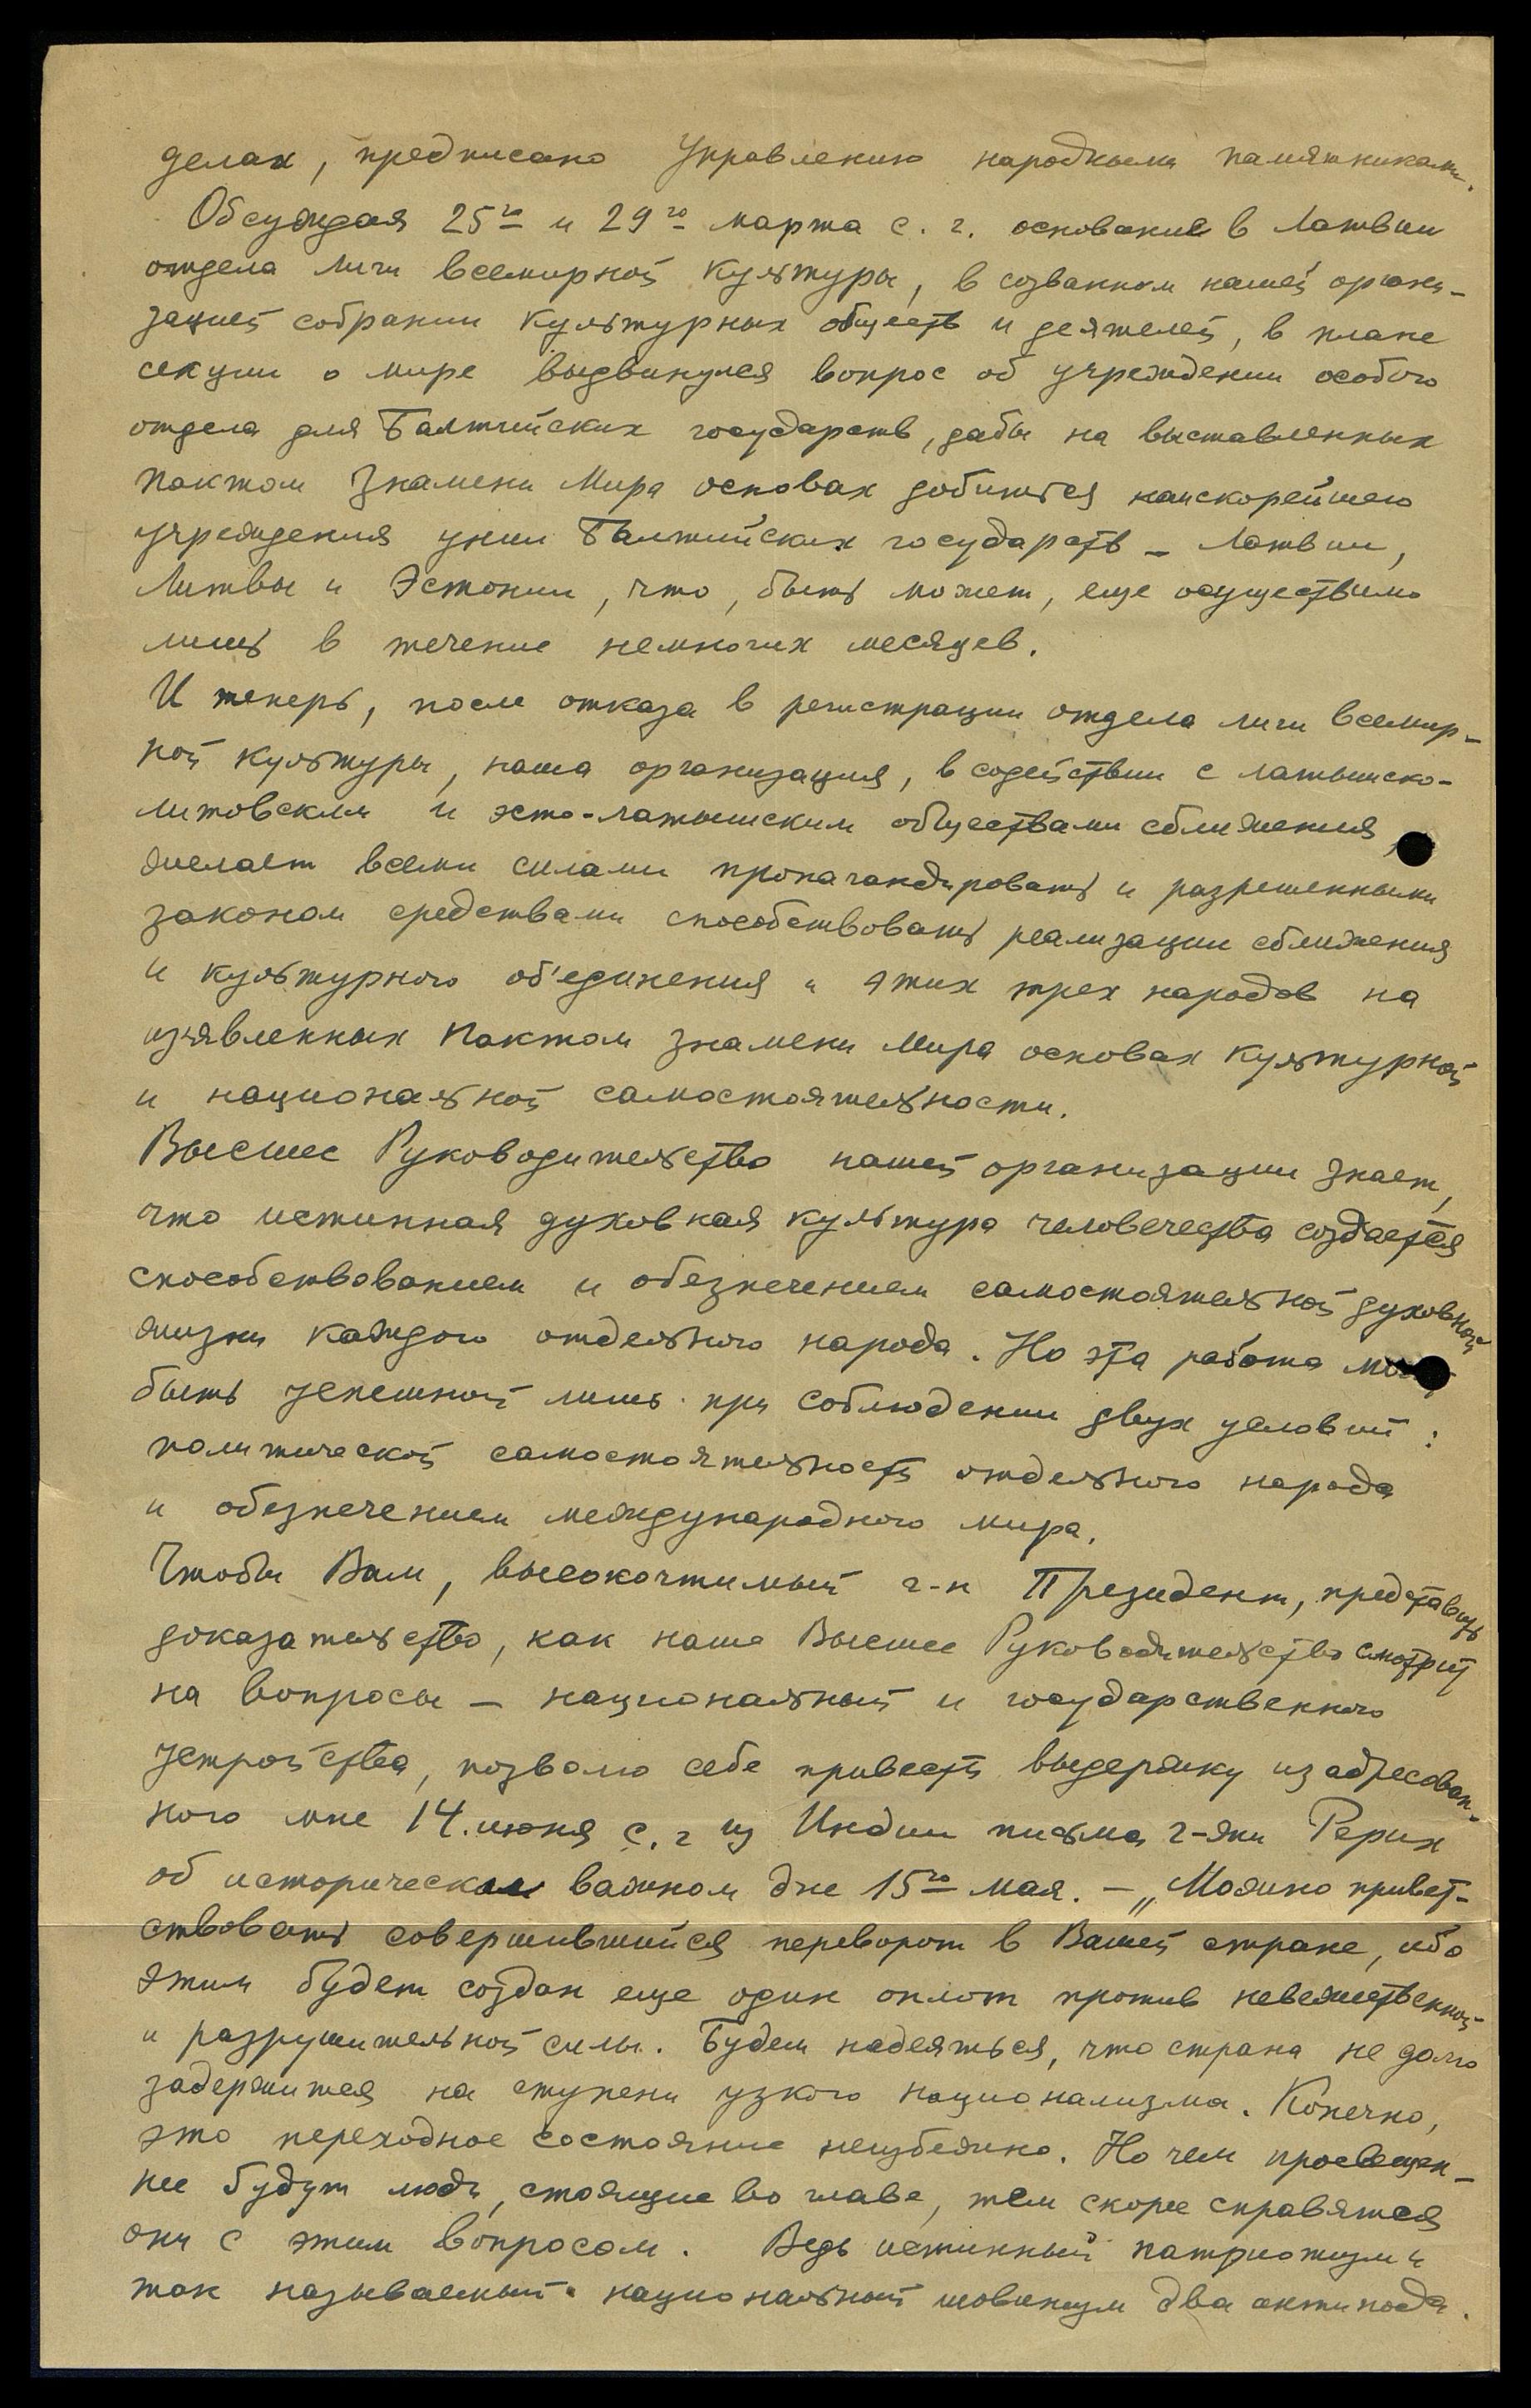 делах, предписано Управлению народными памятниками.
Обсуждая 25го и 29го марта с. г. основание в Латвии
отдела лиги всемирной культуры, в созванном нашей органи-
зацией собрании культурных обществ и деятелей, в плане
секции о мире выдвинулся вопрос об учреждении особого
отдела для Балтийских государств, дабы на выставленных
пактом Знамени Мира основах добиться наискорейшего
учреждения унии Балтийских государств – Латвии,
Литвы и Эстонии, что, быть может, еще осуществимо
лишь в течение немногих месяцев.
И теперь, после отказа в регистрации отдела лиги всемир-
ной культуры, наша организация, в содействии с латышско-
литовским и эсто-латышским обществами сближения,
желает всеми силами пропагандировать и разрешенными
законом средствами способствовать реализации сближения
и культурного об'единения и этих трех народов на
из'явленных Пактом Знамени Мира основах культурной
и национальной самостоятельности.
Высшее Руководительство нашей организации знает,
что истинная духовная культура человечества создается
способствованием и обезпечением самостоятельной духовной
жизни каждого отдельного народа. Но эта работа
быть успешной лишь при соблюдении двух условий:
политической самостоятельность отдельного народа
и обезпечением международного мира.
Чтобы Вам, высокочтимый г-н Президент, представить
доказательство, как наше Высшее Руководительство смотрит
на вопросы – национальный и государственного
устройства, позволю себе привести выдержку из адресован-
ного мне 14. июня с. г из Индии письма г-жи Рерих
об историческом важном дне 15го мая. – „Можно привет-
ствовать совершившийся переворот в Вашей стране, ибо
этим будет создан еще один оплот против невежественной
и разрушительной силы. Будем надеяться, что страна не долго
задержится на ступени узкого национализма. Конечно,
это переходное состояние неизбежно. Но чем просвещен-
нее будут люди, стоящие во главе, тем скорее справятся
они с этим вопросом. Ведь истинный патриотизм и
так называемый национальный шовинизм два антипода.